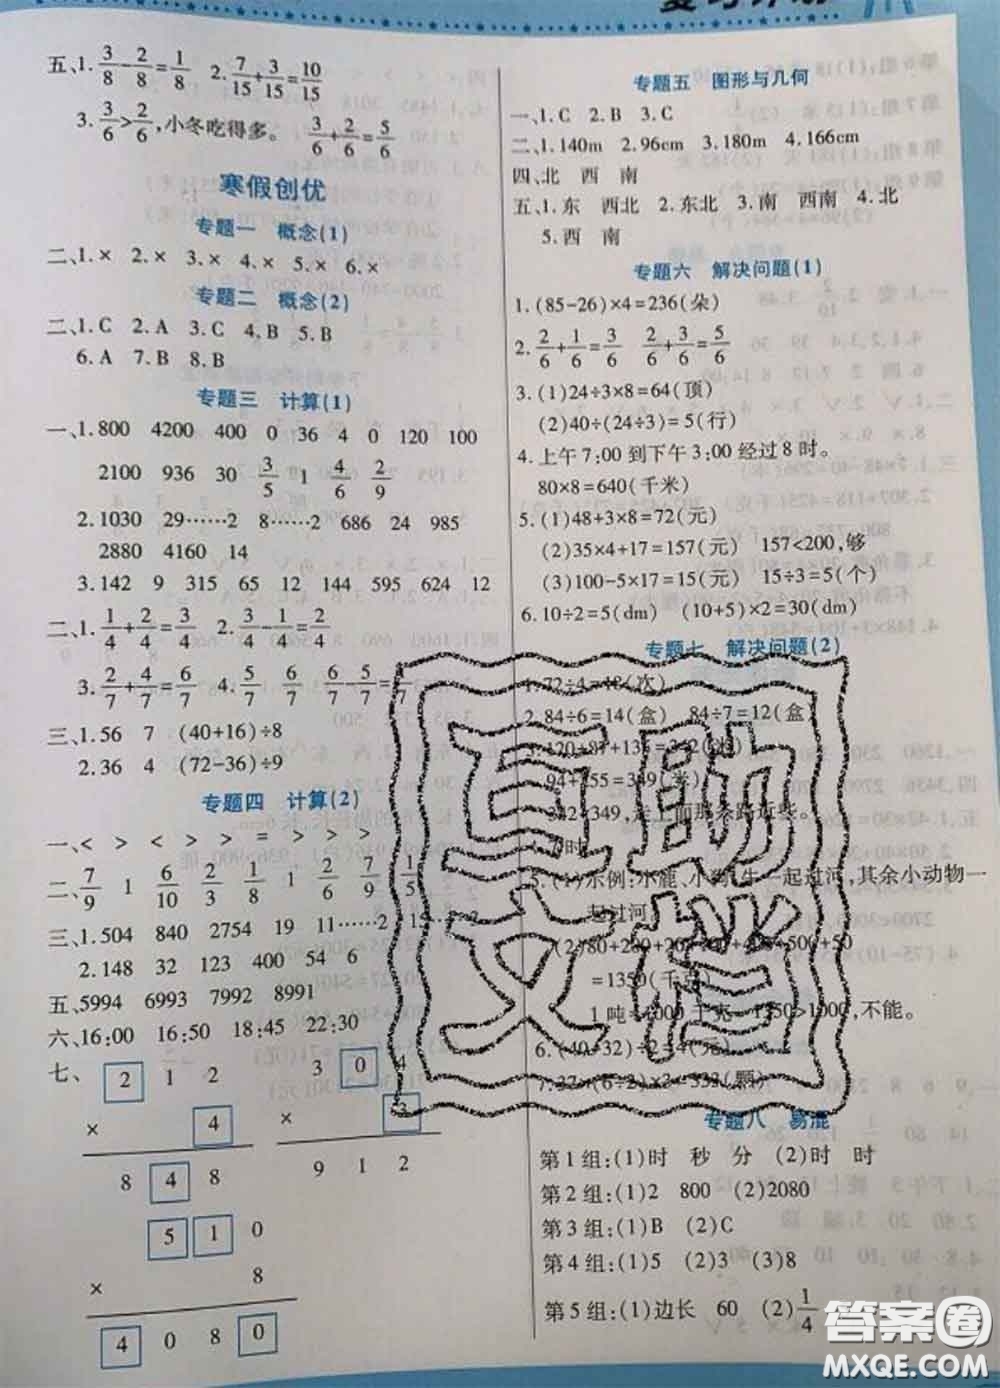 五、1. 3/8-2/8=1/8 2. 7/15+3/15=10/15
3. 3/6>2/6,小冬吃得多。 3/6+2/6=5/6
寒假创优
专题一 概念(1)
二、1.× 2.× 3.× 4.× 5.× 6.×
专题二 概念(2)
二、1.C 2.A 3.C 4.B 5.B
6.A 7.B 8.B
专题三 计算(1)
一、1.800 4200 400 0 36 4 0 120 100
2100 936 30 3/5 1 4/6 2/9
2.1030 29……2 8……2 686 24 985
2880 4160 14
3.142 9 315 65 12 144 595 624 12
二、1. 1/4+2/4=3/4 2. 3/4-1/4=2/4
3. 2/7+4/7=6/7 4. 5/7-1/7=4/7 6/7-5/7=1/7
三、1.56 7 (40+16)÷8
2.36 4 (72-36)÷9
专题四 计算(2)
一、< > < > > = > > >
二、7/9 1 6/10 2/3 8/8 1 2/6 7/9 1/5
三、1.504 840 2754 19 11……2
2.148 32 123 400 54 6
五、5994 6993 7992 8991
六、16:00 16:50 18:45 22:30
七、 2 1 2
× 4
8 4 8
3 0 4
× 3
9 1 2
5 1 0
× 8
4 0 8 0
专题五 图形与几何
一、1.C 2.B 3.C
二、1.140m 2.96cm 3.180m 4.166cm
四、北 西 南
五、1.东 西北 2.东北 3.南 西南 4.北
5.西 南
专题六 解决问题(1)
1.(85-26)×4=236(朵)
2. 2/6+1/6=3/6 2/6+3/6=5/6
3.(1)24÷3×8=64(顶)
(2)40÷(24÷3)=5(行)
4.上午7:00到下午3:00经过8时。
80×8=640(千米)
5.(1)48+3×8=72(元)
(2)35×4+17=157(元) 157<200,够
(3)100-5×17=15(元) 15÷3=5(个)
6.10÷2=5(dm) (10+5)×2=30(dm)
专题七 解决问题(2)
1.72÷4=18(次)
2.84÷6=14(盒) 84÷7=12(盒)
94+255=349(米)
342<349,走上面那条路近些。
5.(1)示例:小鹿、小狗、牛一起过河,其余小动物一
起过河。
=1350(千克)
1吨=1000千克 1350>1000,不能。
6.(40+32)÷2=4(元)
7.37×(6÷2)×3=333(颗)
专题八 易混
第1组:(1)时 秒 分 (2)时 时
第2组:(1)2 800 (2)2080
第3组:(1)B (2)C
第4组:(1)5 (2)3 (3)8
第5组:(1)边长 60 (2)1/4
互助文档
答案圈
MXQE.COM